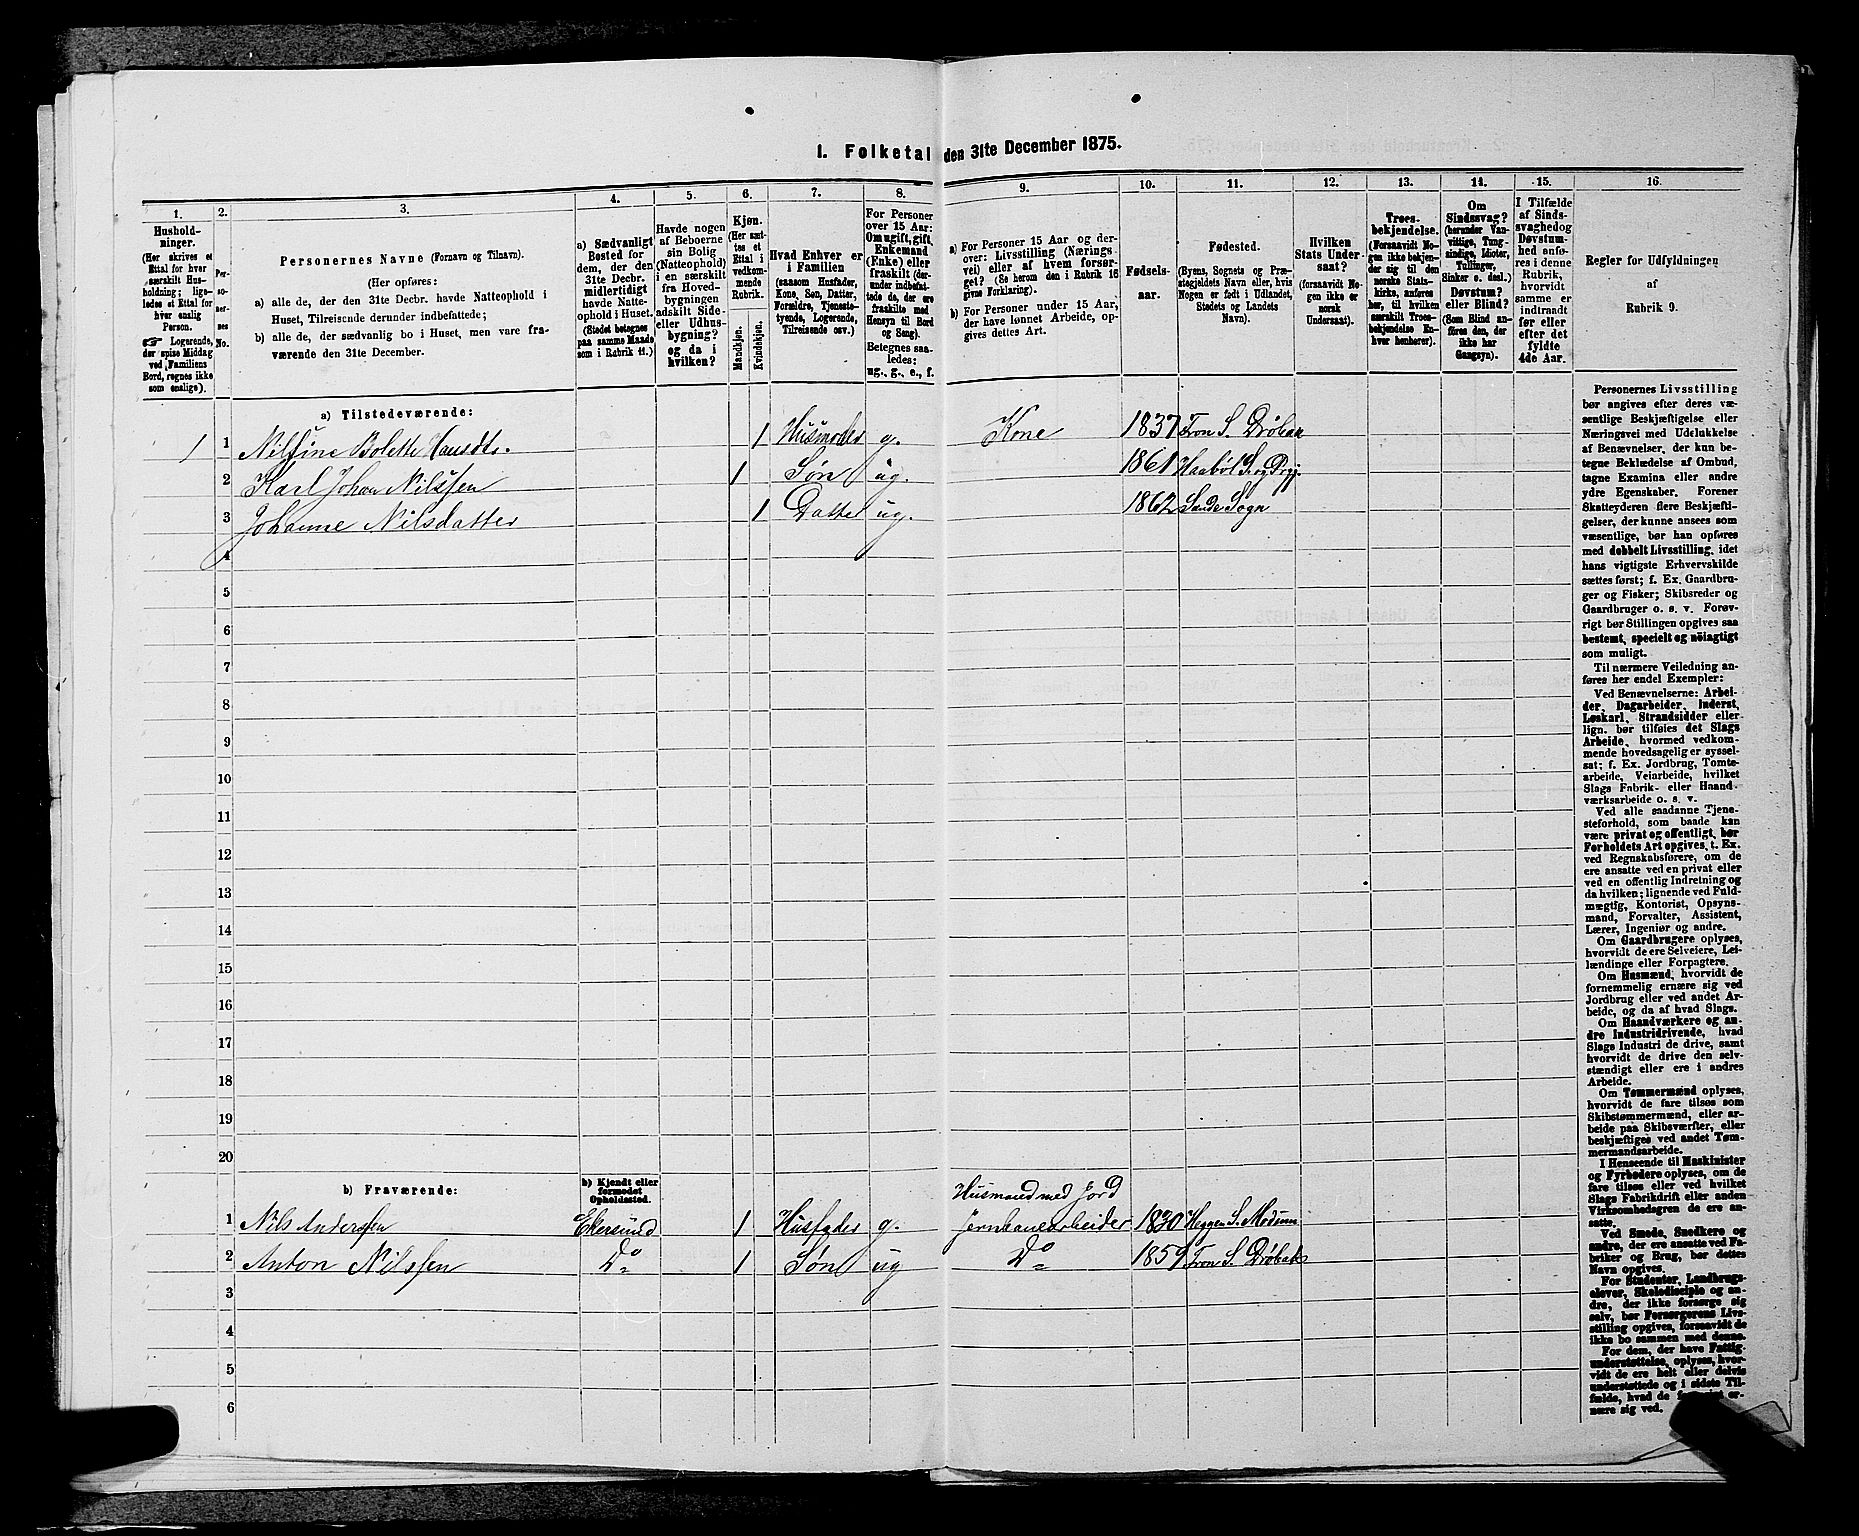 1. Folketal den 31te December 1875.
1.
Hushold-
ninger.
(Her skrives et
Ettal for hver
særskilt Hus-
holdning; lige-
ledes et Ettal for
hver enslig
Person.
☞ Logerende,
der spise Middag
ved Familiens
Bord, regnes ikke
som enslige).
2.
Per-
so-
ner-
nes
No.
3.
Personernes Navne (Fornavn og Tilnavn).
(Her opføres:
a) alle de, der den 31te Decbr. havde Natteophold i
Huset, Tilreisende derunder indbefattede;
b) alle de, der sædvanlig bo i Huset, men vare fra-
værende den 31te December.
4.
a) Sædvanligt
Bosted for
dem, der den
31te Decbr.
midlertidigt
havde Natte-
ophold i Huset.
(Stedet betegnes
paa samme Maade
som i Rubrik 11.)
5.
Havde nogen
af Beboerne
sin Bolig
(Natteophold)
i en særskilt
fra Hoved-
bygningen
adskilt Side-
eller Udhus-
bygning?
og da i
hvilken?
6.
Kjøn.
(Her sæt-
tes et
Ettal i
vedkom-
mende
Rubrik.
Mandkjøn.
Kvindekjøn.
7.
Hvad Enhver er
i Familien
(saasom Husfader,
Kone, Søn, Datter,
Forældre, Tjeneste-
tyende, Logerende,
Tilreisende osv.)
8.
For Personer
over 15 Aar:
Om ugift, gift,
Enkemand
(Enke) eller
fraskilt (der-
under indbefat-
tede de, der ere
fraskilte med
Hensyn til Bord
og Seng).
Betegnes saa-
ledes:
ug., g., e., f.
9.
a) For Personer 15 Aar og der-
over: Livsstilling (Nærings-
vei) eller af hvem forsør-
get? (Se herom den i Rubrik 16
givne Forklaring).
b) For Personer under 15 Aar,
der have lønnet Arbeide, op-
gives dettes Art.
10.
Fødsels-
aar.
11.
Fødested.
(Byens, Sognets og Præ-
stegjeldets Navn eller, hvis
Nogen er født i Udlandet,
Stedets og Landets
Navn).
12.
Hvilken
Stats Under-
saat?
(forsaavidt No-
gen ikke er
norsk
Undersaat).
13.
Troes-
bekjendelse.
(Forsaavidt No-
gen ikke bekjen-
der sig til den
norske Stats-
kirke, anføres
her, til hvilken
særskilt Troes-
bekjendelse En-
hver henhører).
14.
Om
Sindssvag?
(herunder Van-
vittige, Tung-
sindige, Idioter,
Tullinger,
Sinker o. desl.)
Døvstum?
eller Blind?
(Som Blind an-
føres den, der
ikke har
Gangsyn).
15.
I Tilfælde
af Sinds-
svaghed og
Døvstum-
hed anfø-
res i denne
Rubrik,
hvorvidt
samme er
indtraadt
før eller
efter det
fyldte
4de Aar.
16.
Regler for Udfyldningen
af
Rubrik 9.
a) Tilstedeværende:
1 1 Nilsine Bolette Hansdtr. 1 Husmoder g. Kone 1837 Fron S. Drøbak
2 Karl Johan Nilssen 1 Søn ug. 1861 Haabøl S. og Prgj.
3 Johanne Nilsdatter 1 Datte ug. 1862 Sande Sogn
4
5
6
7
8
9
10
11
12
13
14
15
16
17
18
19
20
b) Fraværende:
b) Kjendt eller
formodet
Opholdssted.
Husmand med Jord
1 Nils Anderssen Ekersund 1 Husfader g. Jernbanearbeider 1830 Heggen S. Modum
2 Anton Nilssen Do 1 Søn ug Do 1859 Fron S. Drøbak
3
4
5
6
Personernes Livsstilling
bør angives efter deres væ-
sentlige Beskjæftigelse eller
Næringsvei med Udelukkelse
af Benævnelser, der kun be-
tegne Beklædelse af Ombud,
tagne Examina eller andre
ydre Egenskaber. Forener
Skatteyderen flere Beskjæfti-
gelser, der kunne ansees som
væsentlige, bør han opføres
med dobbelt Livsstilling, idet
hans vigtigste Erhvervskilde
sættes først; f. Ex. Gaardbru-
ger og Fisker; Skibsreder og
Gaardbruger o. s. v. Forøv-
rigt bør Stillingen opgives saa
bestemt, specielt og nöiagtigt
som muligt.
Til nærmere Veiledning an-
føres her endel Exempler:
Ved Benævnelserne: Arbei-
der, Dagarbeider, Inderst,
Løskarl, Strandsidder eller
lign. bør tilføies det Slags
Arbeide, hvormed vedkom-
mende hovedsagelig er syssel-
sat; f. Ex. Jordbrug, Tomte-
arbeide, Veiarbeide, hvilket
Slags Fabrik- eller Haand-
værksarbeide o. s. v.
Ved alle saadanne Tjene-
steforhold, som baade kan
være privat og offentligt, bør
Forholdets Art opgives, t. Ex.
ved Regnskabsførere, om de
ere ansatte ved en privat eller
ved en offentlig Indretning og
da hvilken; lignende ved Fuld-
mægtig, Kontorist, Opsyns-
mand, Forvalter, Assistent,
Lærer, Ingeniør og andre.
Om Gaardbrugere oplyses,
hvorvidt de ere Selveiere, Lei-
lændinge eller Forpagtere.
Om Husmænd, hvorvidt de
fornemmelig ernære sig ved
Jordbrug eller ved andet Ar-
beide, og da af hvad Slags.
Om Haandværkere og an-
dre Industridrivende, hvad
Slags Industri de drive, samt
hvorvidt de drive den selv-
stændigt eller ere i andres
Arbeide.
Om Tømmermænd oplyses,
hvorvidt de fare tilsøs som
Skibstømmermænd, eller ar-
beide paa Skibsværfter, eller
beskjæftiges ved andet Tøm-
mermandsarbeide.
I Henseende til Maskinister
og Fyrbødere oplyses, om de
fare tilsøs eller ved hvilket
Slags Fabrikdrift eller anden
Virksomhedsgren de ere an-
satte.
Ved Smede, Snedkere og
andre, der ere ansatte ved Fa-
briker og Brug, bør dettes
Navn opgives.
For Studenter, Landbrugs-
elever, Skoledisciple og an-
dre, der ikke forsørge sig
selv, bør Forsørgerens Livs-
stilling opgives, forsaavidt de
ikke bo sammen med denne.
For dem, der have Fattig-
understøttelse, oplyses, hvor-
vidt de ere helt eller delvis
understøttede og i sidste Til-
fælde, hvad de er-
nære sig ved.